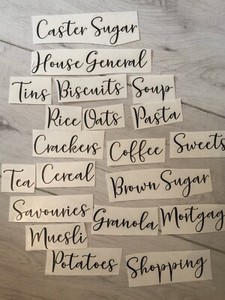 Caster Sugar
House General
Tins Biscuits Soup
Rice Oats Pasta
Crackers Coffee Sweets
Tea Cereal Brown Sugar
Savouries Granola Mortgag
Muesli
Potatoes Shopping